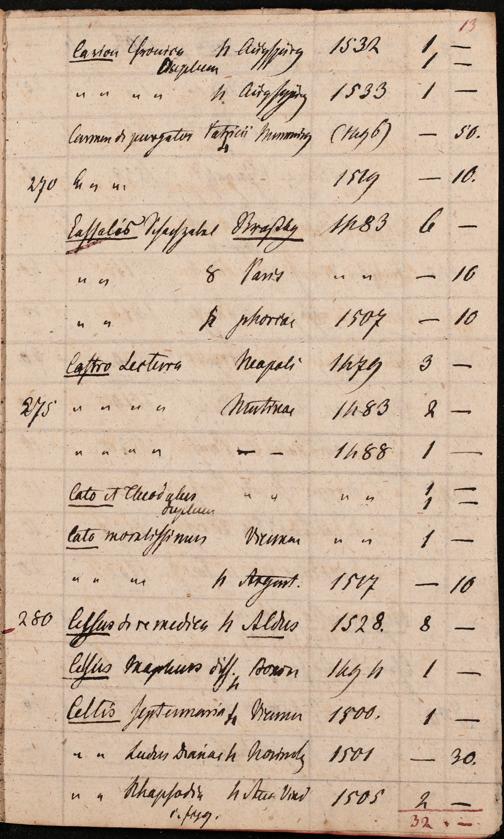 13
Carion Chronica 4 Augspurg 1532 1 —
Duplum 1 —
" " " " 4 Augspurg 1533 1 —
Carmen de purgator Patricii Memming (1496) — 50.
4
270 " " " 1519 — 10.
Cassalis Schachzabel Strasbg 1483 6 —
" " 8 Paris " " — 16
" " 4 phorcae 1507 — 10
Castro Lectura Neapoli 1479 3 —
275 " " " " Mutinae 1483 2 —
" " " " — — 1488 1 —
Cato et Theodulus " " " " 1 —
Duplum 1 —
Cato moralissimus Viennae " " 1 —
" " " 4 August. 1517 — 10
280 Celsus de re medica 4 Aldus 1528. 8 —
Celsus Maphaeus diss. 4 Bonon 1494 1 —
Celtis Septenmaria 4 Viennae 1500. 1 —
" " Ludus Dianae 4 Norimbg 1501 — 30.
" " Rhapsodia 4 Aug Vind 1505 2 —
32. . —